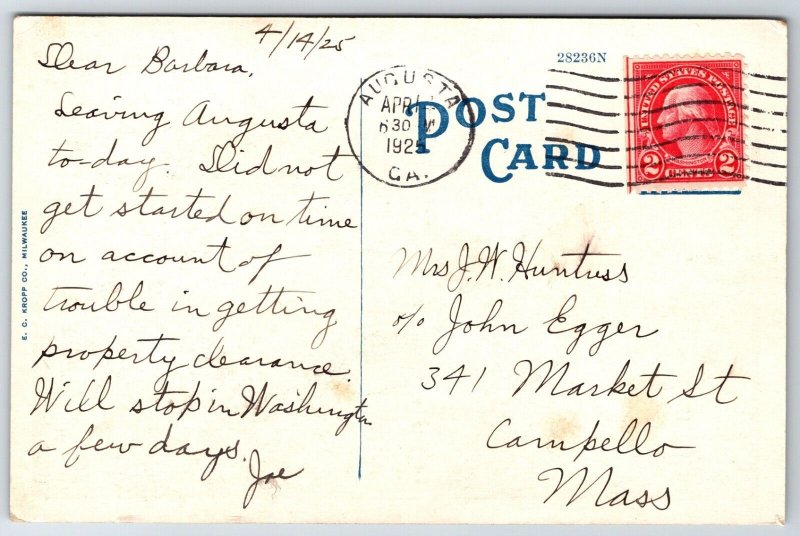 4/14/25
Dear Barbara,
Leaving Augusta
to-day. Did not
get started on time
on account of
trouble in getting
property clearance.
Will stop in Washington
a few days.
Joe
E. C. KROPP CO., MILWAUKEE
28236N
POST
CARD
AUGUSTA
APR
630 M
1925
GA.
UNITED STATES POSTAGE
2 CENTS 2
Mrs J. W. Huntress
c/o John Egger
341 Market St
Campello
Mass